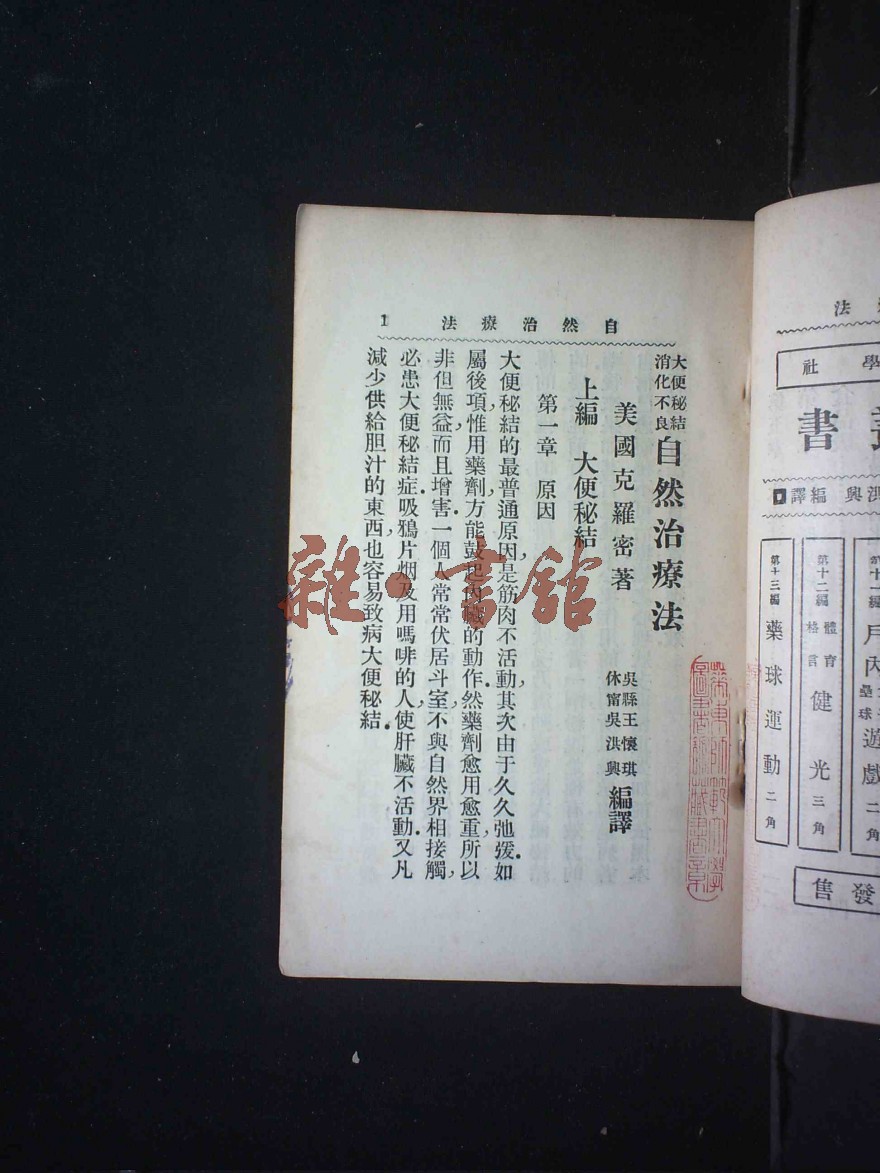 自然治療法 1
大便秘結
消化不良
自然治療法
美國克羅密著
吳縣王懷琪
休甯吳洪興
編譯
上編 大便秘結
第一章 原因
大便秘結的最普通原因,是筋肉不活動,其次由于久久弛緩.如
屬後項,惟用藥劑,方能鼓起內臟的動作.然藥劑愈用愈重,所以
非但無益,而且增害.一個人常常伏居斗室,不與自然界相接觸,
必患大便秘結症.吸鴉片烟及用嗎啡的人,使肝臟不活動.又凡
減少供給胆汁的東西,也容易致病大便秘結.
雜·書館
法
學社
書
洪興 編譯
戶內
遊戲
第十二編
體育
格言
健光
三角
第十三編
藥球運動
二角
發售